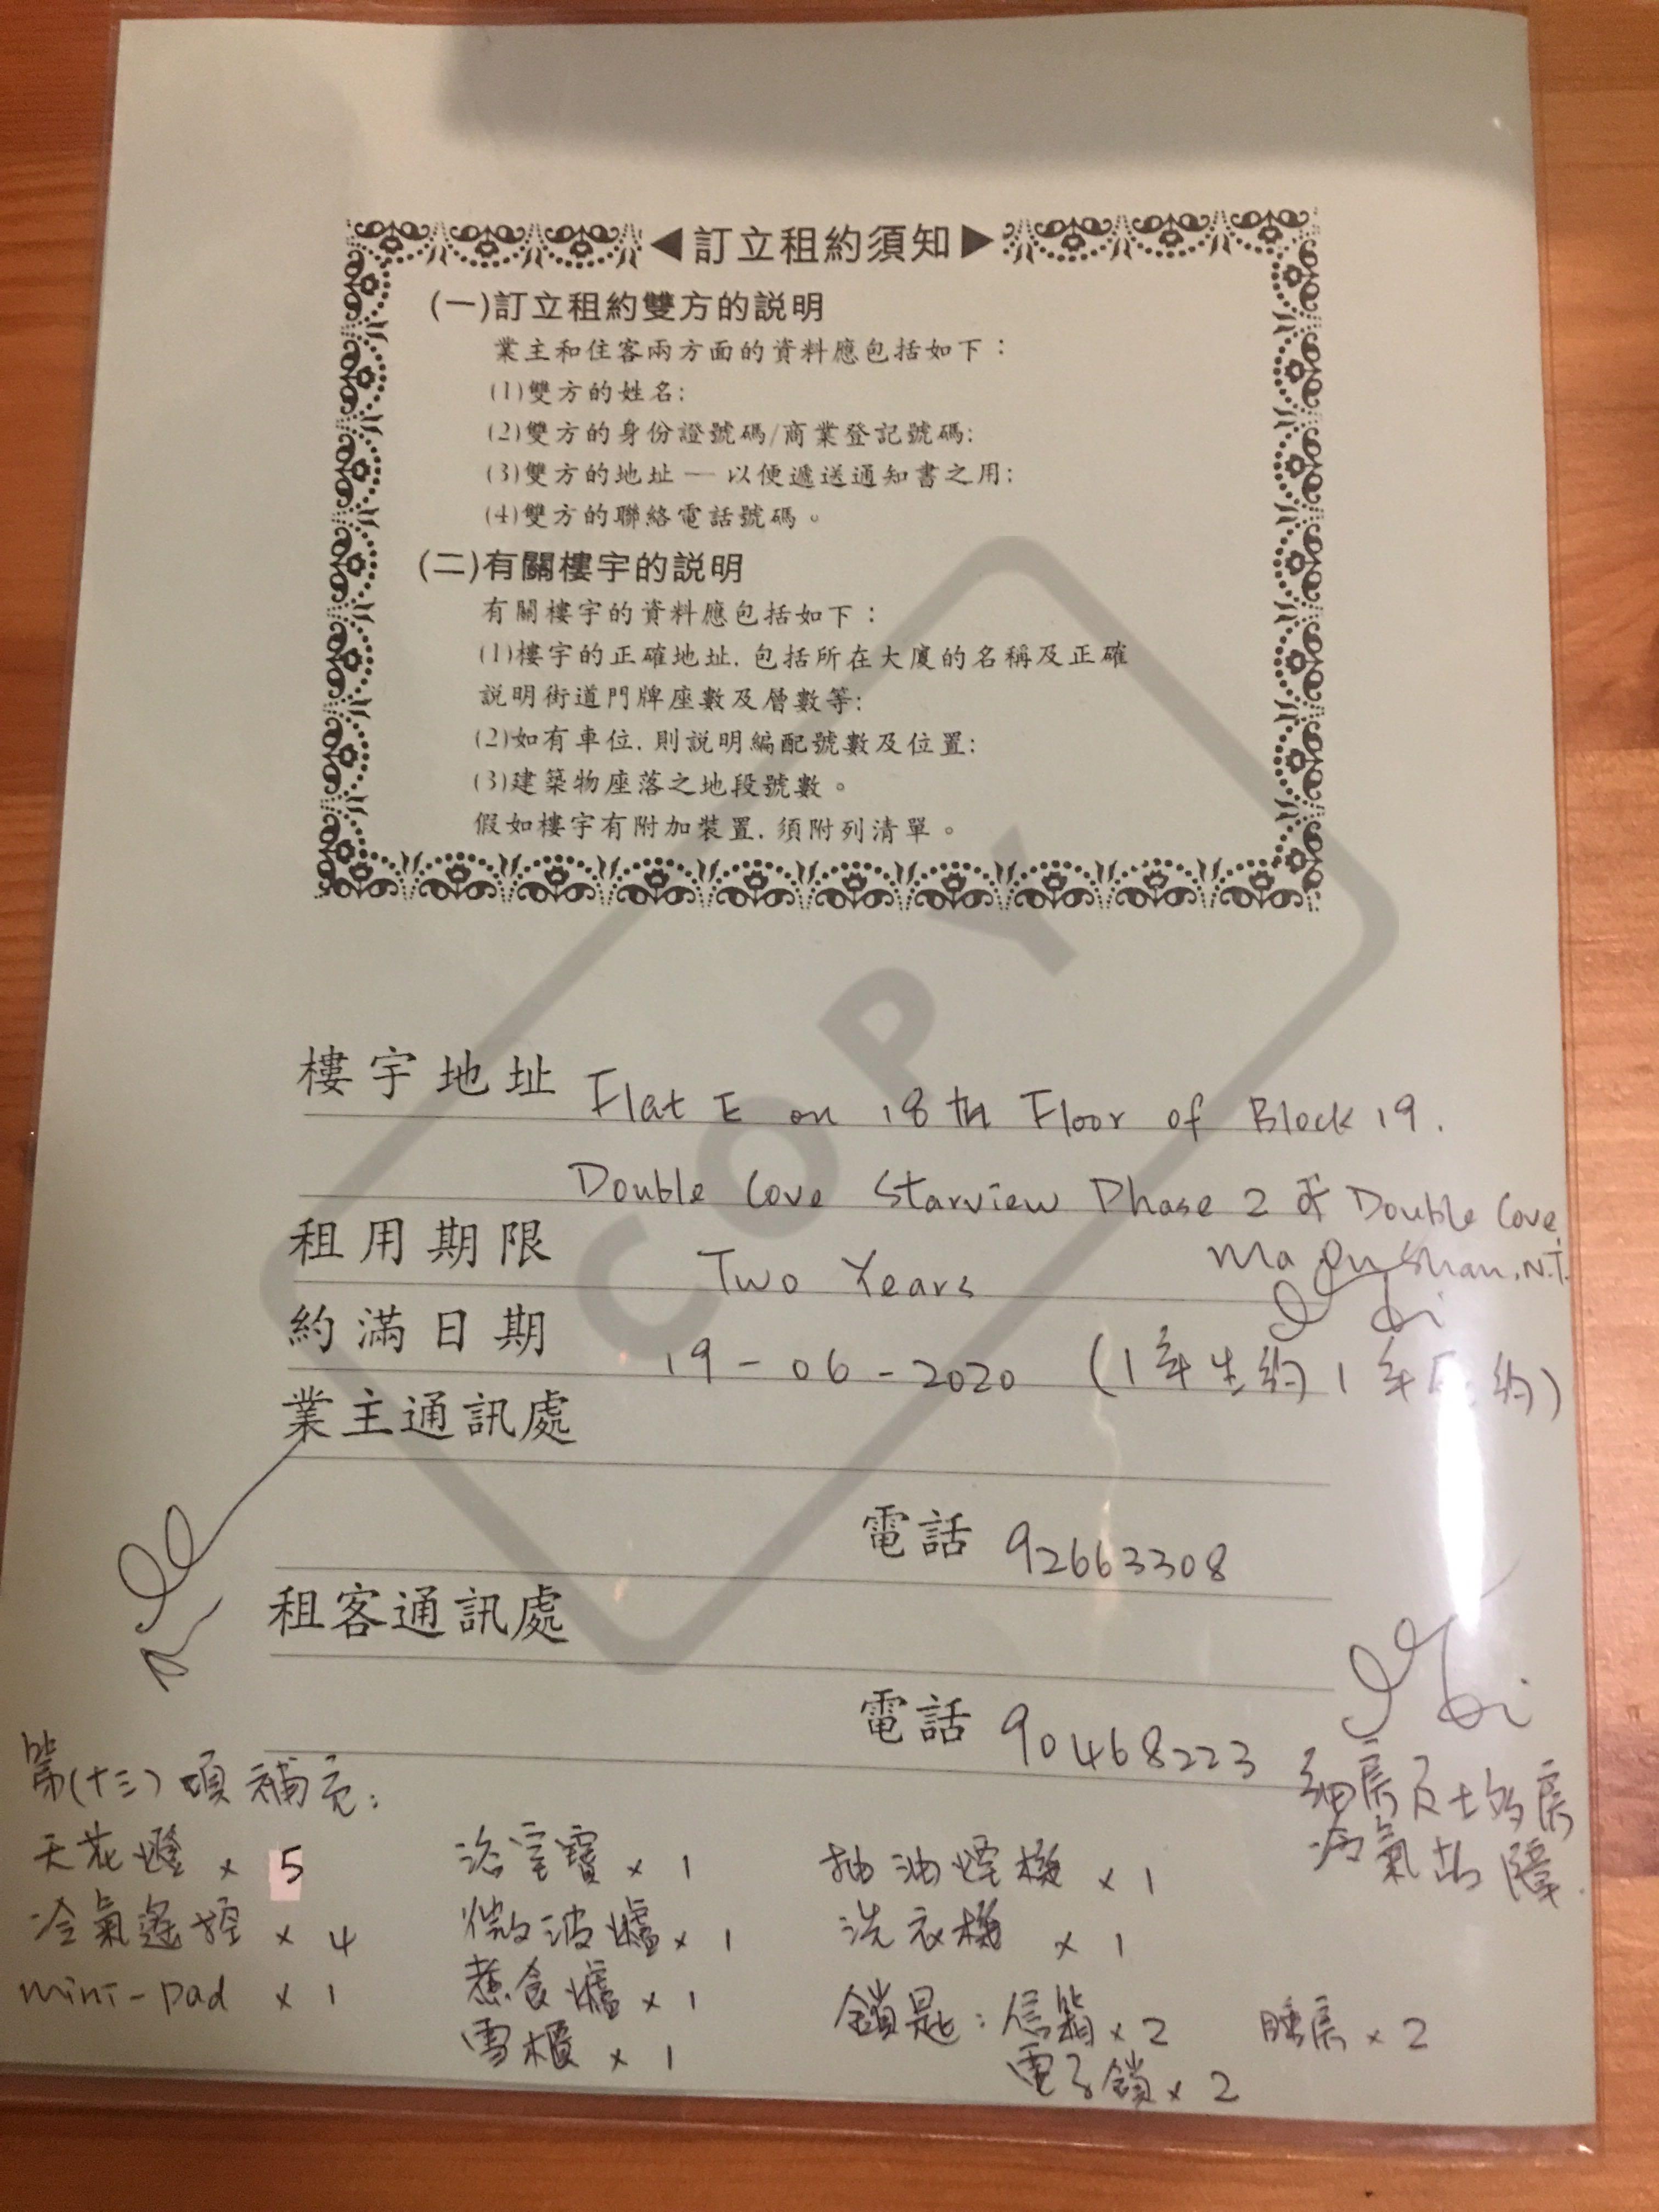 ◀訂立租約須知▶
(一)訂立租約雙方的説明
業主和住客兩方面的資料應包括如下：
(1)雙方的姓名;
(2)雙方的身份證號碼/商業登記號碼;
(3)雙方的地址 — 以便遞送通知書之用;
(4)雙方的聯絡電話號碼。
(二)有關樓宇的説明
有關樓宇的資料應包括如下：
(1)樓宇的正確地址, 包括所在大廈的名稱及正確
説明街道門牌座數及層數等;
(2)如有車位, 則説明編配號數及位置;
(3)建築物座落之地段號數。
假如樓宇有附加裝置, 須附列清單。
COPY
樓宇地址 Flat E on 18th Floor of Block 19.
Double Cove Starview Phase 2 of Double Cove,
Ma On Shan, N.T.
租用期限 Two Years
約滿日期 19-06-2020 (1年生約1年死約)
業主通訊處
電話 92663308
租客通訊處
電話 90468223
第(十三)項補充:
細房及士多房
冷氣故障.
天花燈 x 5 浴室寶 x 1 抽油煙機 x 1
冷氣遙控 x 4 微波爐 x 1 洗衣機 x 1
mini-pad x 1 煮食爐 x 1 鎖匙: 信箱 x 2 睡房 x 2
雪櫃 x 1 電子鎖 x 2